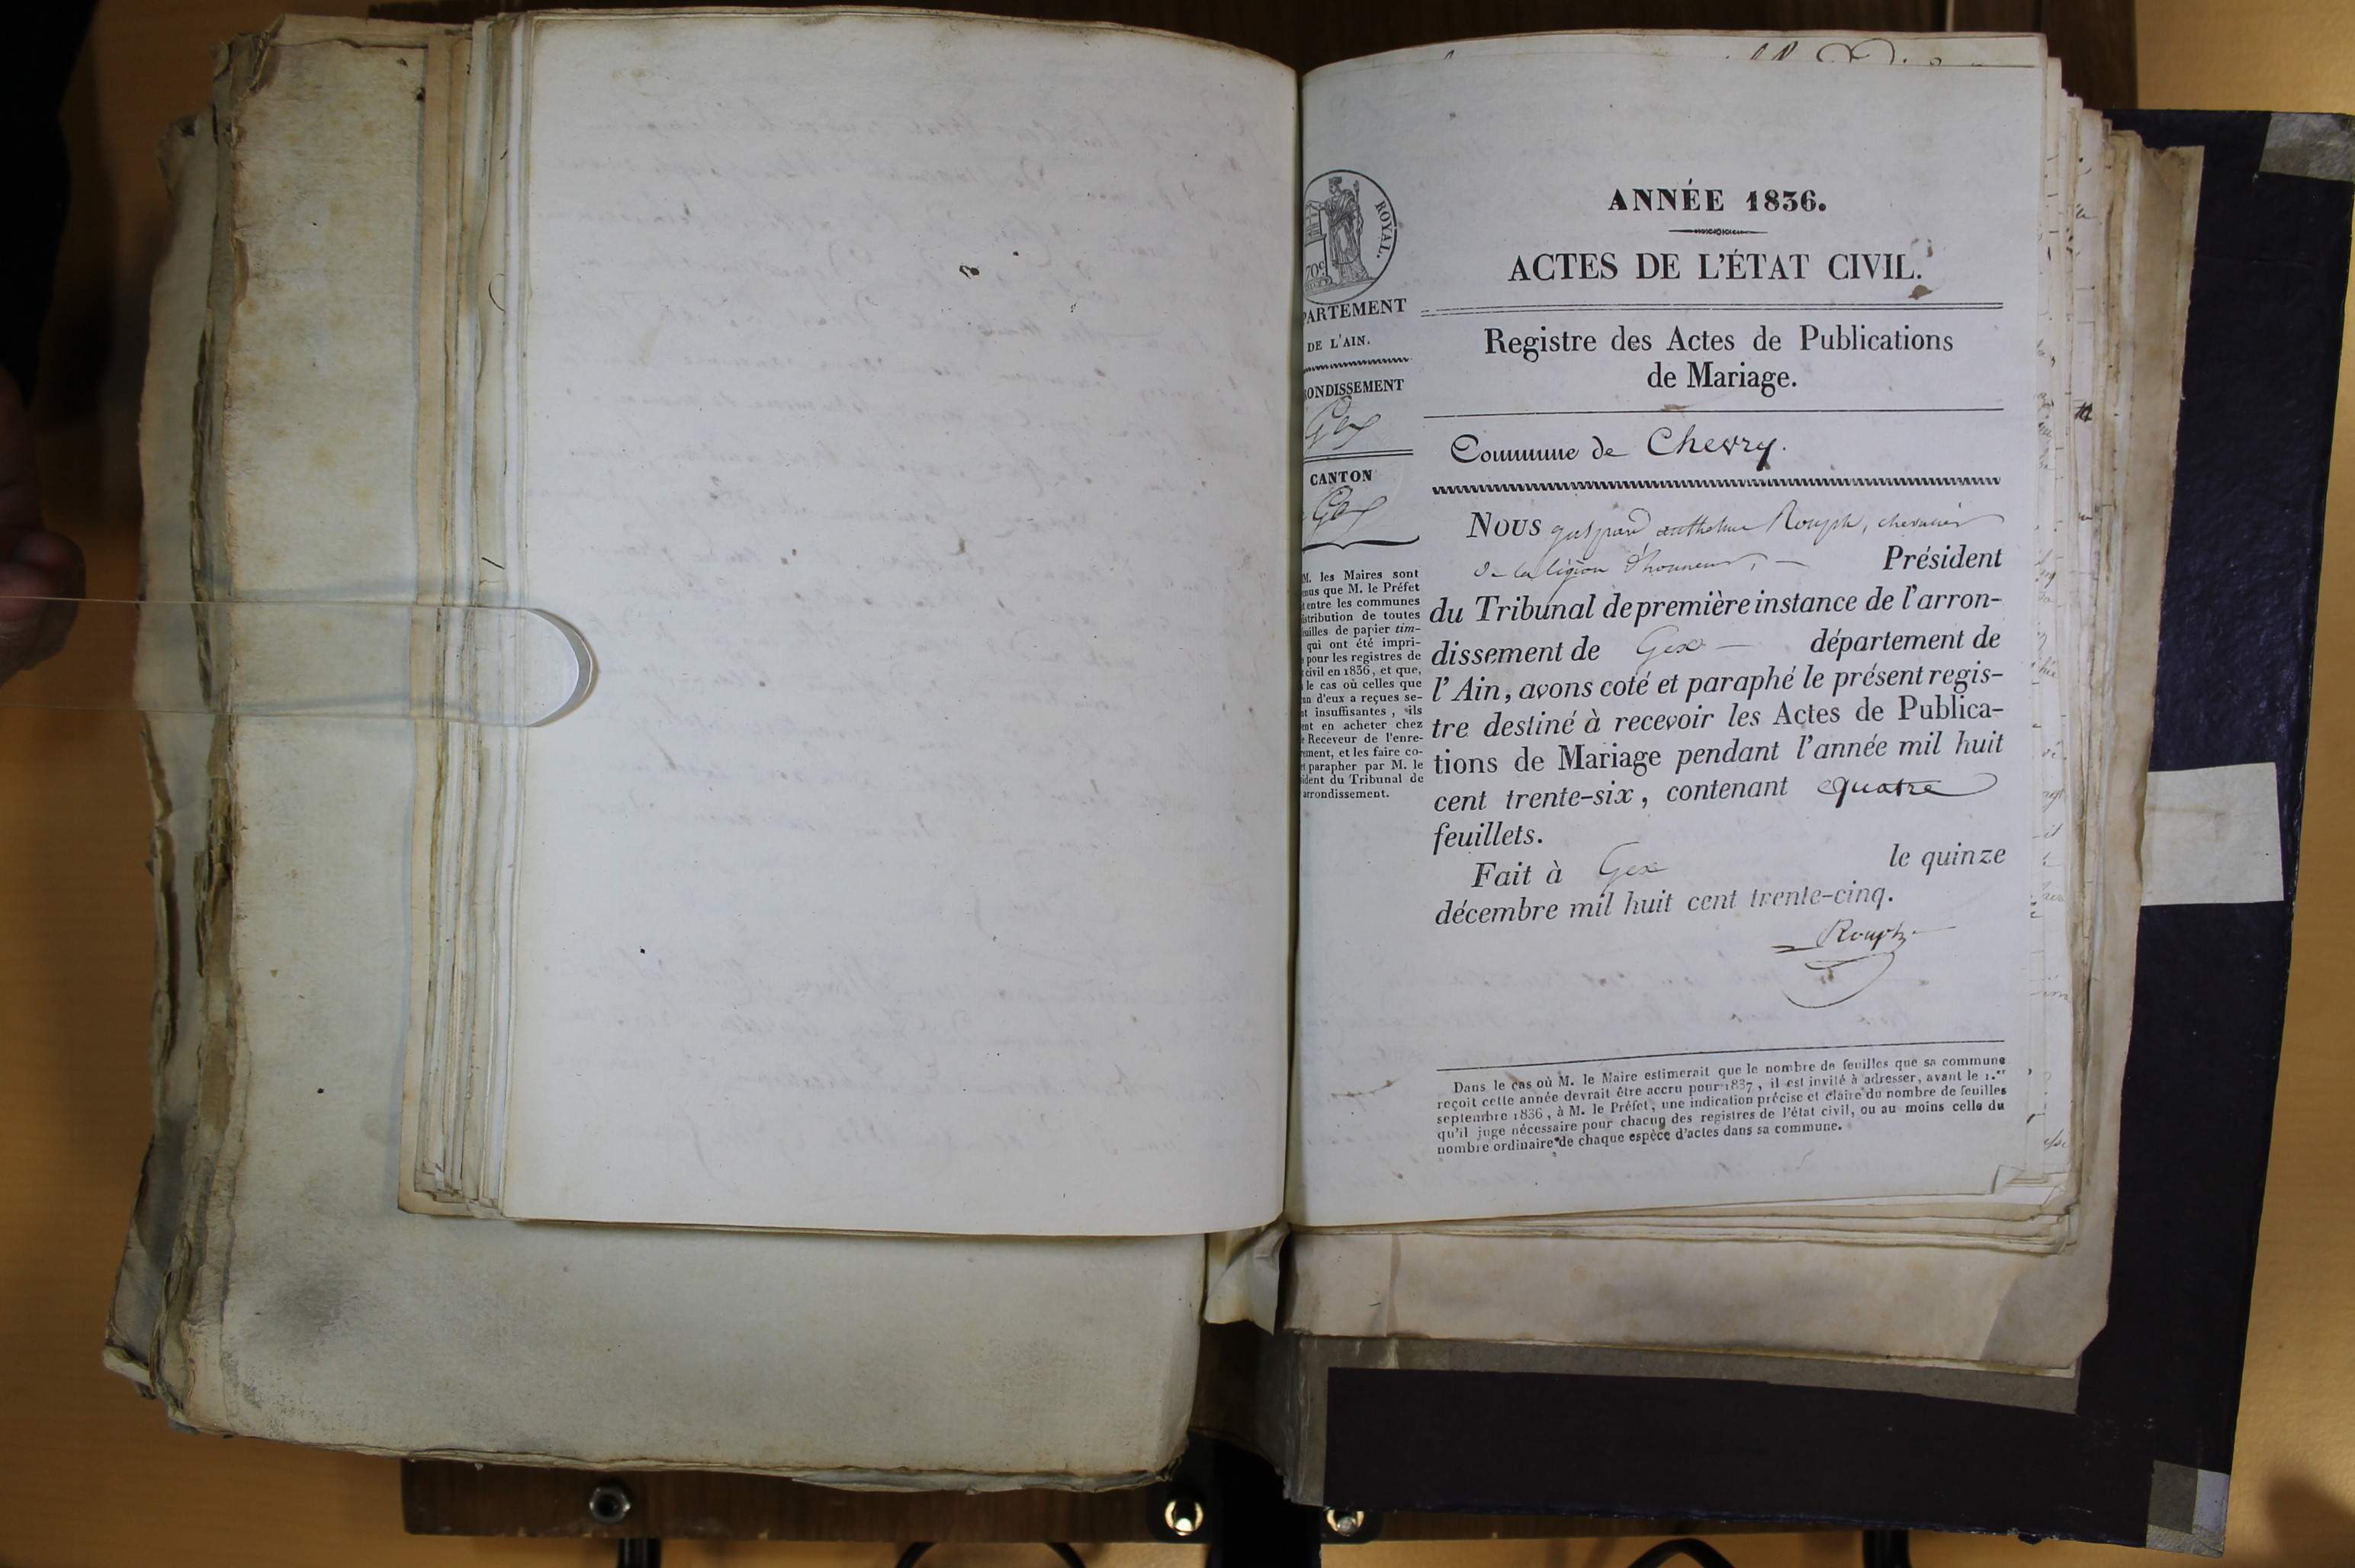 ROYAL.
70c
PARTEMENT
DE L'AIN.
RONDISSEMENT
Gex
CANTON
Gex
M. les Maires sont
enus que M. le Préfet
t entre les communes
istribution de toutes
euilles de papier tim-
qui ont été impri-
pour les registres de
civil en 1836, et que,
le cas où celles que
un d'eux a reçues se-
nt insuffisantes, ils
ent en acheter chez
e Receveur de l'enre-
rement, et les faire co-
et parapher par M. le
sident du Tribunal de
arrondissement.
ANNÉE 1836.
ACTES DE L'ÉTAT CIVIL.
Registre des Actes de Publications
de Mariage.
Commune de Chevry.
Nous gaspard anthelme Rouph, chevalier
de la légion d'honneur, — Président
du Tribunal de première instance de l'arron-
dissement de Gex — département de
l'Ain, avons coté et paraphé le présent regis-
tre destiné à recevoir les Actes de Publica-
tions de Mariage pendant l'année mil huit
cent trente-six, contenant quatre
feuillets.
Fait à Gex le quinze
décembre mil huit cent trente-cinq.
Rouph
Dans le cas où M. le Maire estimerait que le nombre de feuilles que sa commune
reçoit cette année devrait être accru pour 1837, il est invité à adresser, avant le 1.er
septembre 1836, à M. le Préfet, une indication précise et claire du nombre de feuilles
qu'il juge nécessaire pour chacun des registres de l'état civil, ou au moins celle du
nombre ordinaire de chaque espèce d'actes dans sa commune.